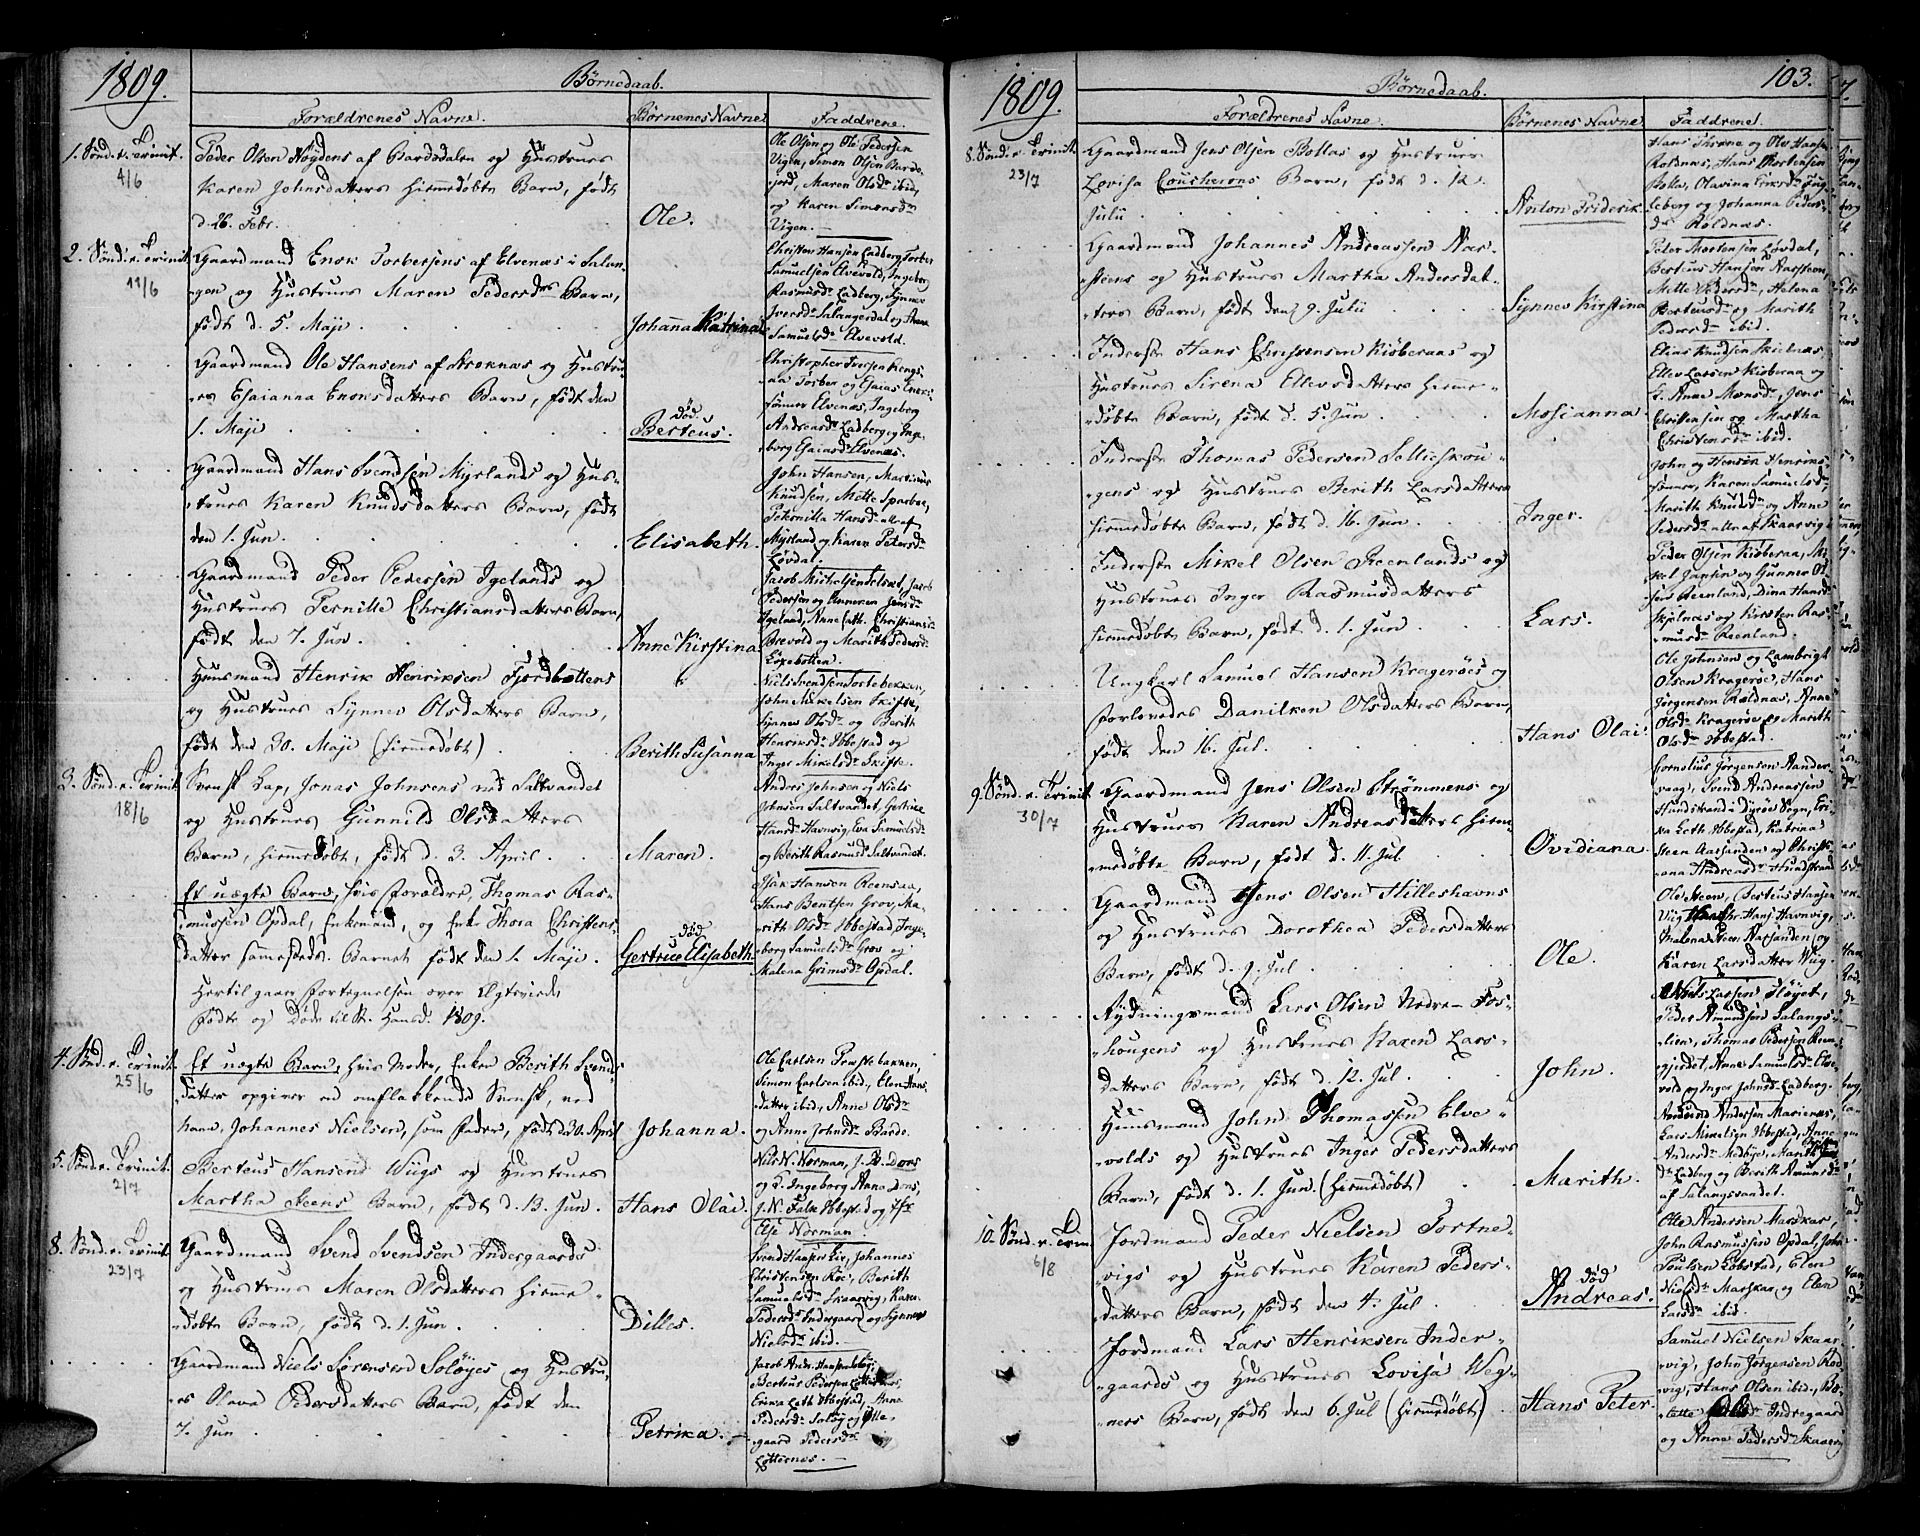 1809.
Børnedaab.
Forældrenes Navne.
Børnenes Navne
Faddrene.
1. Sønd. e. Trinit.
4/6
Peder Olsen Høydens af Bardodalen og Hustrues
Karen Johnsdatters hiemmedøbte Barn, født
d. 26. Febr.
Ole.
Ole Olsen og Ole Pedersen
Vigen, Simon Olsen Barde-
fjord, Maren Olsdr ibid,
og Karen Simonsdr
Vigen.
2. Sønd. e. Trinit.
11/6
Gaardmand Enok Torbersens af Elvenæs i Salan-
gen og Hustrues Maren Pedersdrs Barn,
født d. 5. Maji
Johanna Katrina
Christen Hansen Ladberg, Torber
Samuelsen Elvevold, Ingeborg
Rasmusdr Ladberg, Synnev
Iversdr Salangsdal og Anne
Samuelsdr Elvevold.
Gaardmand Ole Hansens af Kroknæs og Hustru-
es Esaianna Enoksdatters Barn, født den
1. Maji
død.
Berteus.
Christopher Iversen Kongs-
aa Torber og Esaias Enoks
sønner Elvenæs, Ingeborg
Andreasdr Ladberg og Inge-
borg Esaiasdr Elvenæs.
Gaardmand Hans Svendsen Myrlands og Hus-
trues Karen Knudsdatters Barn, født
den 1. Jun.
Elisabeth.
John Hansen, Martinus
Knudsen, Mette Sparboe,
Peternilla Hansdr alle af
Myrland, og Karen Petersdr
Løvdal.
Gaardmand Peder Pedersen Igelands og
Hustrues Pernille Christiansdatters Barn,
født den 7. Jun.
Anne Kirstina
Jacob Mickelsen, Jacob
Pedersen og Anneken Jensdr
Igeland, Anne Cath. Christiansdr
Brevold og Marith Pedersdr
Laxebotten.
Huusmand Henrik Henriksen Fjordbottens
og Hustrues Synnev Olsdatters Barn,
født den 30. Maji (hiemmedøbt)
Berith Susanna
Niels Svendsen Tortebekken,
John Mikelsen Skifte,
Synnev Olsdr og Berith
Henriksdr Ibbestad og
Inger Mikelsdr Skifte.
3. Sønd. e. Trinit.
18/6
Svensk Lap, Jonas Johnsens ved Saltvandet
og Hustrues Gunnild Olsdatters
Barn, hiemmedøbt, født d. 3. April.
Maren.
Anders Johnsen og Niels
Johnsen Saltvandet, Gertrue
Hansdr Havnvig, Eva Samuelsdr
og Berith Rasmusdr Saltvandet.
Et uægte Barn, hvis Forældre, Thomas Ras-
mussen Opdal, Enkemand, og Enke Thora Christens
datter samesteds. Barnet født den 1. Maji.
død
Gertrue Elisabeth.
Isak Hansen Reensaa,
Hans Bentsen Grov, Ma-
rith Olsdr Ibbestad, Inge-
borg Samuelsdr Grov og
Malena Grimsdr Opdal.
Hertil gaaer Fortegnelsen over Ægteviede
Fødte og Døde til St. Hansd. 1809.
4. Sønd. e. Trinit.
25/6
Et uægte Barn, hvis Moder, Enken Berith Svends
datter opgiver en omflakkende Svensk, ved
navn, Johannes Nielsen, som Fader, født d. 30. April
Johanna.
Ole Carlsen Prestebakken,
Simon Carlsen ibid, Elen Hans-
datter ibid, Anne Olsdr
og Anne Johnsdr Bardo.
5. Sønd. e. Trinit.
2/7
Berteus Hansens Wugs og Hustrues
Martha Steens Barn, født d. 13. Jun.
Hans Olai.
Nils N. Norman, J. B. Dons
og D. Ingeborg Anna Dons,
J. N. Falk Ibbestad og Jfr
Else Norman
8. Sønd. e. Trinit.
23/7
Gaardmand Svend Svendsen Indergaards
og Hustrues Maren Olsdatters hiemme-
døbte Barn, født d. 1. Jun.
Dilles.
Svend Hansen Eir, Johannes
Christensen Røe, Berith
Samuelsdr Skaarvig, Karen
Pedersdr Indergaard og Synnev
Nielsdr ibid.
Gaardmand Niels Sørensen Soløyes og Hustru-
es Olava Pedersdatters Barn, født den
7. Jun
Petrika.
Jacob Andr. Hansen,
Berteus Pedersen Lotternæs,
Erica Lath Ibbestad, Anna
Pedersdr Soløy og Otte-
gaard Pedersdr
Lotternæs.
1809.
Børnedaab.
103.
Forældrenes Navne.
Børnenes Navne
Faddrene.
8. Sønd. e. Trinit.
23/7
Gaardmand Jens Olsen Bollas og Hustrues
Lovisa Coucherons Barn, født d. 12.
Julii
Anton Friderik.
Hans Thrane og Ole Hansen
Roldnæs, Hans Mortensen
Bolla, Olavina Eriksdr Fug-
leberg og Johanna Peders-
dr Roldnæs.
Gaardmand Johannes Andreassen Aar-
steens og Hustrues Martha Andersdat-
ters Barn, født den 9. Julii
Synnev Kirstina
Peter Mortensen Løvdal,
Berteus Hansen Aarsteen,
Mette Pedersdr, Helena
Berteusdr og Marith
Pedersdr ibid.
Inderste Hans Christensen Kiøberaas og
Hustrues Sirena Ellevsdatters hiemme-
døbte Barn, født d. 5. Jun.
Mosianna.
Elias Knudsen Skielnæs,
Ellev Larsen Kiøberaa og
L. Anne Monsdr, Jens
Christensen og Martha
Christensdr ibid.
Inderste Thomas Pedersen Sellieskou-
gens og Hustrues Berith Larsdatters
hiemmedøbte Barn, født d. 16. Jun.
Inger.
John og Hensik Henriks-
sønner, Karen Samuelsdr,
Marith Knudsdr og Anne
Pedersdr alle af Skaarvig
Inderste Mikel Olsen Reenlands og
Hustrues Inger Rasmusdatters
hiemmedøbte Barn, født d. 1. Jun
Lars.
Peder Olsen Kiøberaa, Mi-
kel Jansen og Gunner Ol-
sens Reenland, Dina Hansdr
Skjelnæs og Kirsten Ras-
musdr Reenland.
Ungkarl Samuel Hansen Kragerøes og
forlovedes Danilken Olsdatters Barn,
født den 16. Jul.
Hans Olai.
Ole Johnsen og Lambrigt
Olsen Kragerøe, Hans
Jørgensen Roldnæs, Anne
Olsdr Kragerøe og Marith
Olsdr Ibbestad.
9. Sønd. e. Trinit.
30/7
Gaardmand Jens Olsen Strømmens og
Hustrues Karen Andreasdatters hiem-
medøbte Barn, født d. 11. Jul.
Ovidiana.
Cornelius Jørgensen Aander-
vaag, Svend Andreassen
Hundstrand i Dyrøe Sogn, Eri-
ka Leth Ibbestad, Katrina
Steen Aarsanden og Christi-
anna Andreasdr Hundstrand
Gaardmand Jens Olsen Hilleshavns
og Hustrues Dorothea Pedersdatters
Barn, født d. 9. Jul.
Ole.
Ole Steen, Berteus Hansen
Vug, Hans Havnvig,
Malena Steen Aarsanden og
Karen Larsdatter Wug.
Rydningsmand Lars Olsen Nedre-Fos-
hougens og Hustrues Karen Lars-
datters Barn, født d. 12. Jul.
John.
Niels Larsen Fløyet,
Peder Amundsen Salangs-
lien, Thomas Pedersen Reen-
gjerdet, Anne Samuelsdr Elve-
vold og Inger Johnsdr Ladberg.
Huusmand John Thomassen Elve-
volds og Hustrues Inger Pedersdatters
Barn, født d. 1. Jun. (hiemmedøbt)
Marith.
Amund Andersen Marienæs,
Lars Mikelsen Ibbestad, Anne
Andersdr Medbye, Marith
dr Ladberg og Berith Amundsdr
af Salangsvandet.
10. Sønd. e. Trin.
6/8
Jordmand Peder Nielsen Tortne-
vigs og Hustrues Karen Peders-
datters Barn, født den 4. Jul.
død
Andreas.
Otte Andersen Marskar,
John Rasmussen Opdal, John
Poulsen Løbstad, Elen
Nielsdr Marskar og Elen
Larsdr ibid.
Jordmand Lars Henriksen Inder-
gaards og Hustrues Lovisa Weg-
ners Barn, født den 6. Jul (hiemmedøbt)
Hans Peter.
Samuel Nielsen Skaar-
vig, John Jørgensen Rod-
vig, Hans Olsen ibid, Bo-
lette Indregaard
og Anna Pedersdr Skaarvig